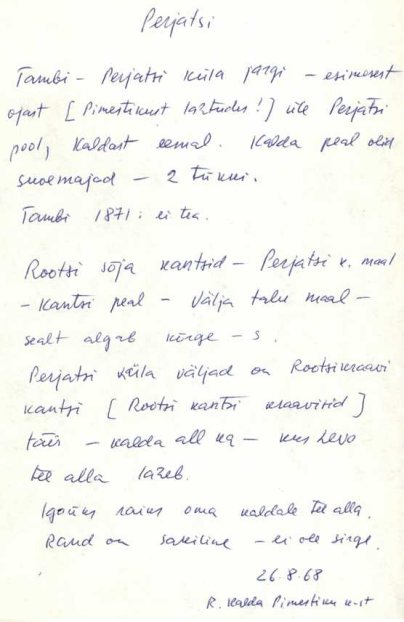 Perjatsi
Tambi – Perjatsi küla järgi – esimesest
ojast [Pimestikust lastudes!] üle Perjatsi
pool, kaldast eemal. Kalda peal olid
suvemajad – 2 tükki.
Tambi 1871: ei tea.
Rootsi sõja kantsid – Perjatsi k. maal
– Kantsi peal – Välja talu maal –
sealt algab kõrge – s.
Perjatsi küla väljad on Rootsikraavi
kantsi [Rootsi kantsi kraavisid]
täis – kalda all ka – kus
tee alla läheb.
Igaüks raius oma kaldale tee alla.
Rand on sakiline – ei ole sirge.
26.8.68
R. Kalda Pimestiku k-st